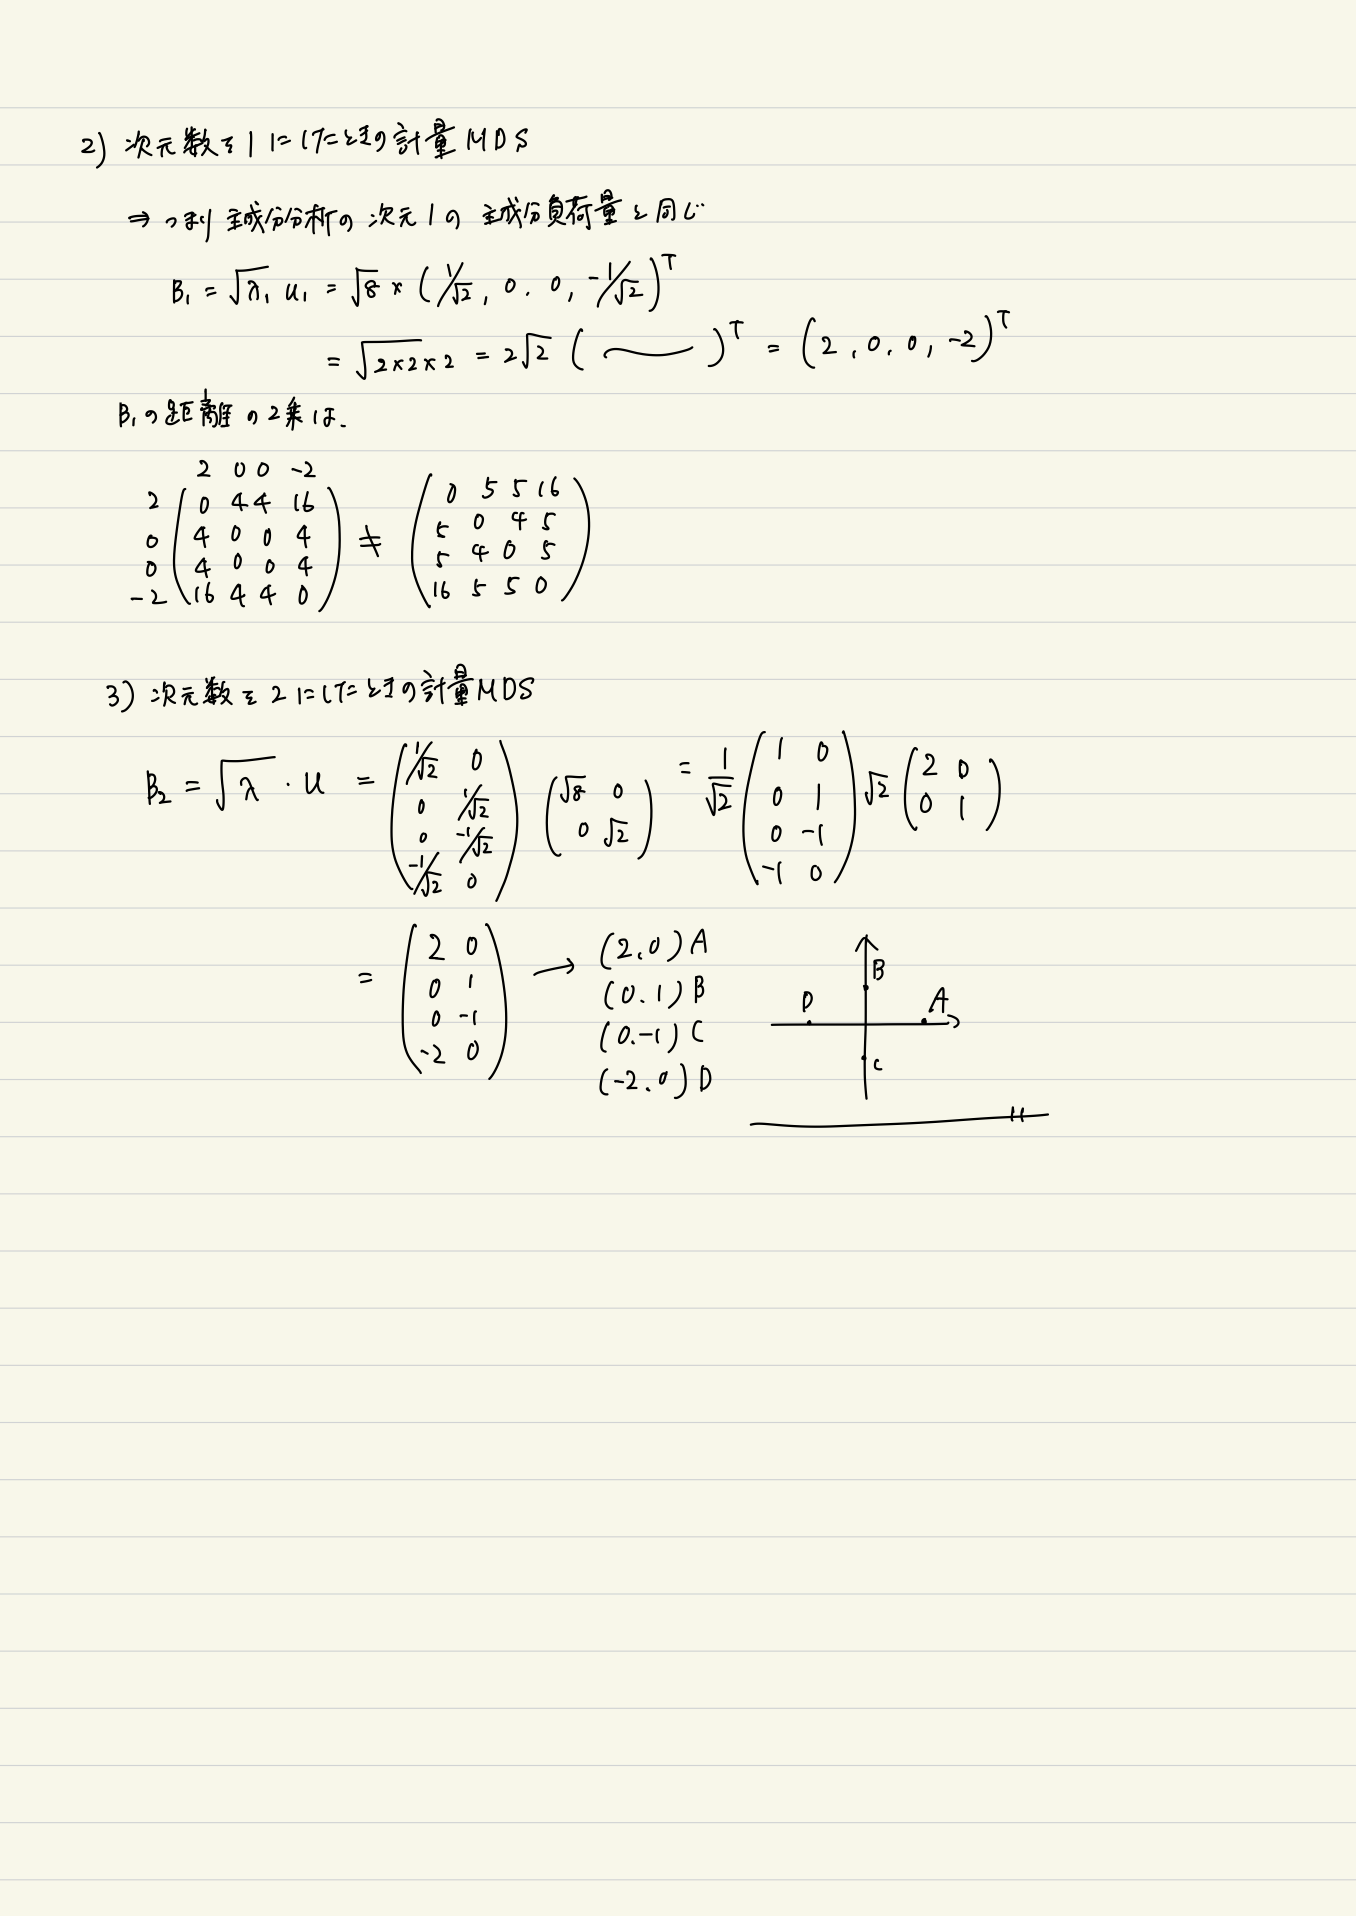 2) 次元数を1にしたときの計量MDS
⇒ つまり 主成分分析の 次元1の 主成分負荷量と同じ
B₁ = √λ₁ u₁ = √8 × (1/√2, 0, 0, -1/√2)ᵀ
= √2×2×2 = 2√2 ( )ᵀ = (2, 0, 0, -2)ᵀ
B₁の距離の2乗は、
2 0 0 -2
2 (0 4 4 16) (0 5 5 16)
0 (4 0 0 4) ≠ (5 0 4 5)
0 (4 0 0 4) (5 4 0 5)
-2 (16 4 4 0) (16 5 5 0)
3) 次元数を2にしたときの計量MDS
B₂ = √λ・u = (1/√2 0 0 1/√2 0 -1/√2 -1/√2 0) (√8 0 0 √2) = 1/√2 (1 0 0 1 0 -1 -1 0) √2 (2 0 0 1)
= (2 0 0 1 0 -1 -2 0) → (2,0) A
(0.1) B
(0.-1) C
(-2.0) D
B
D A
C